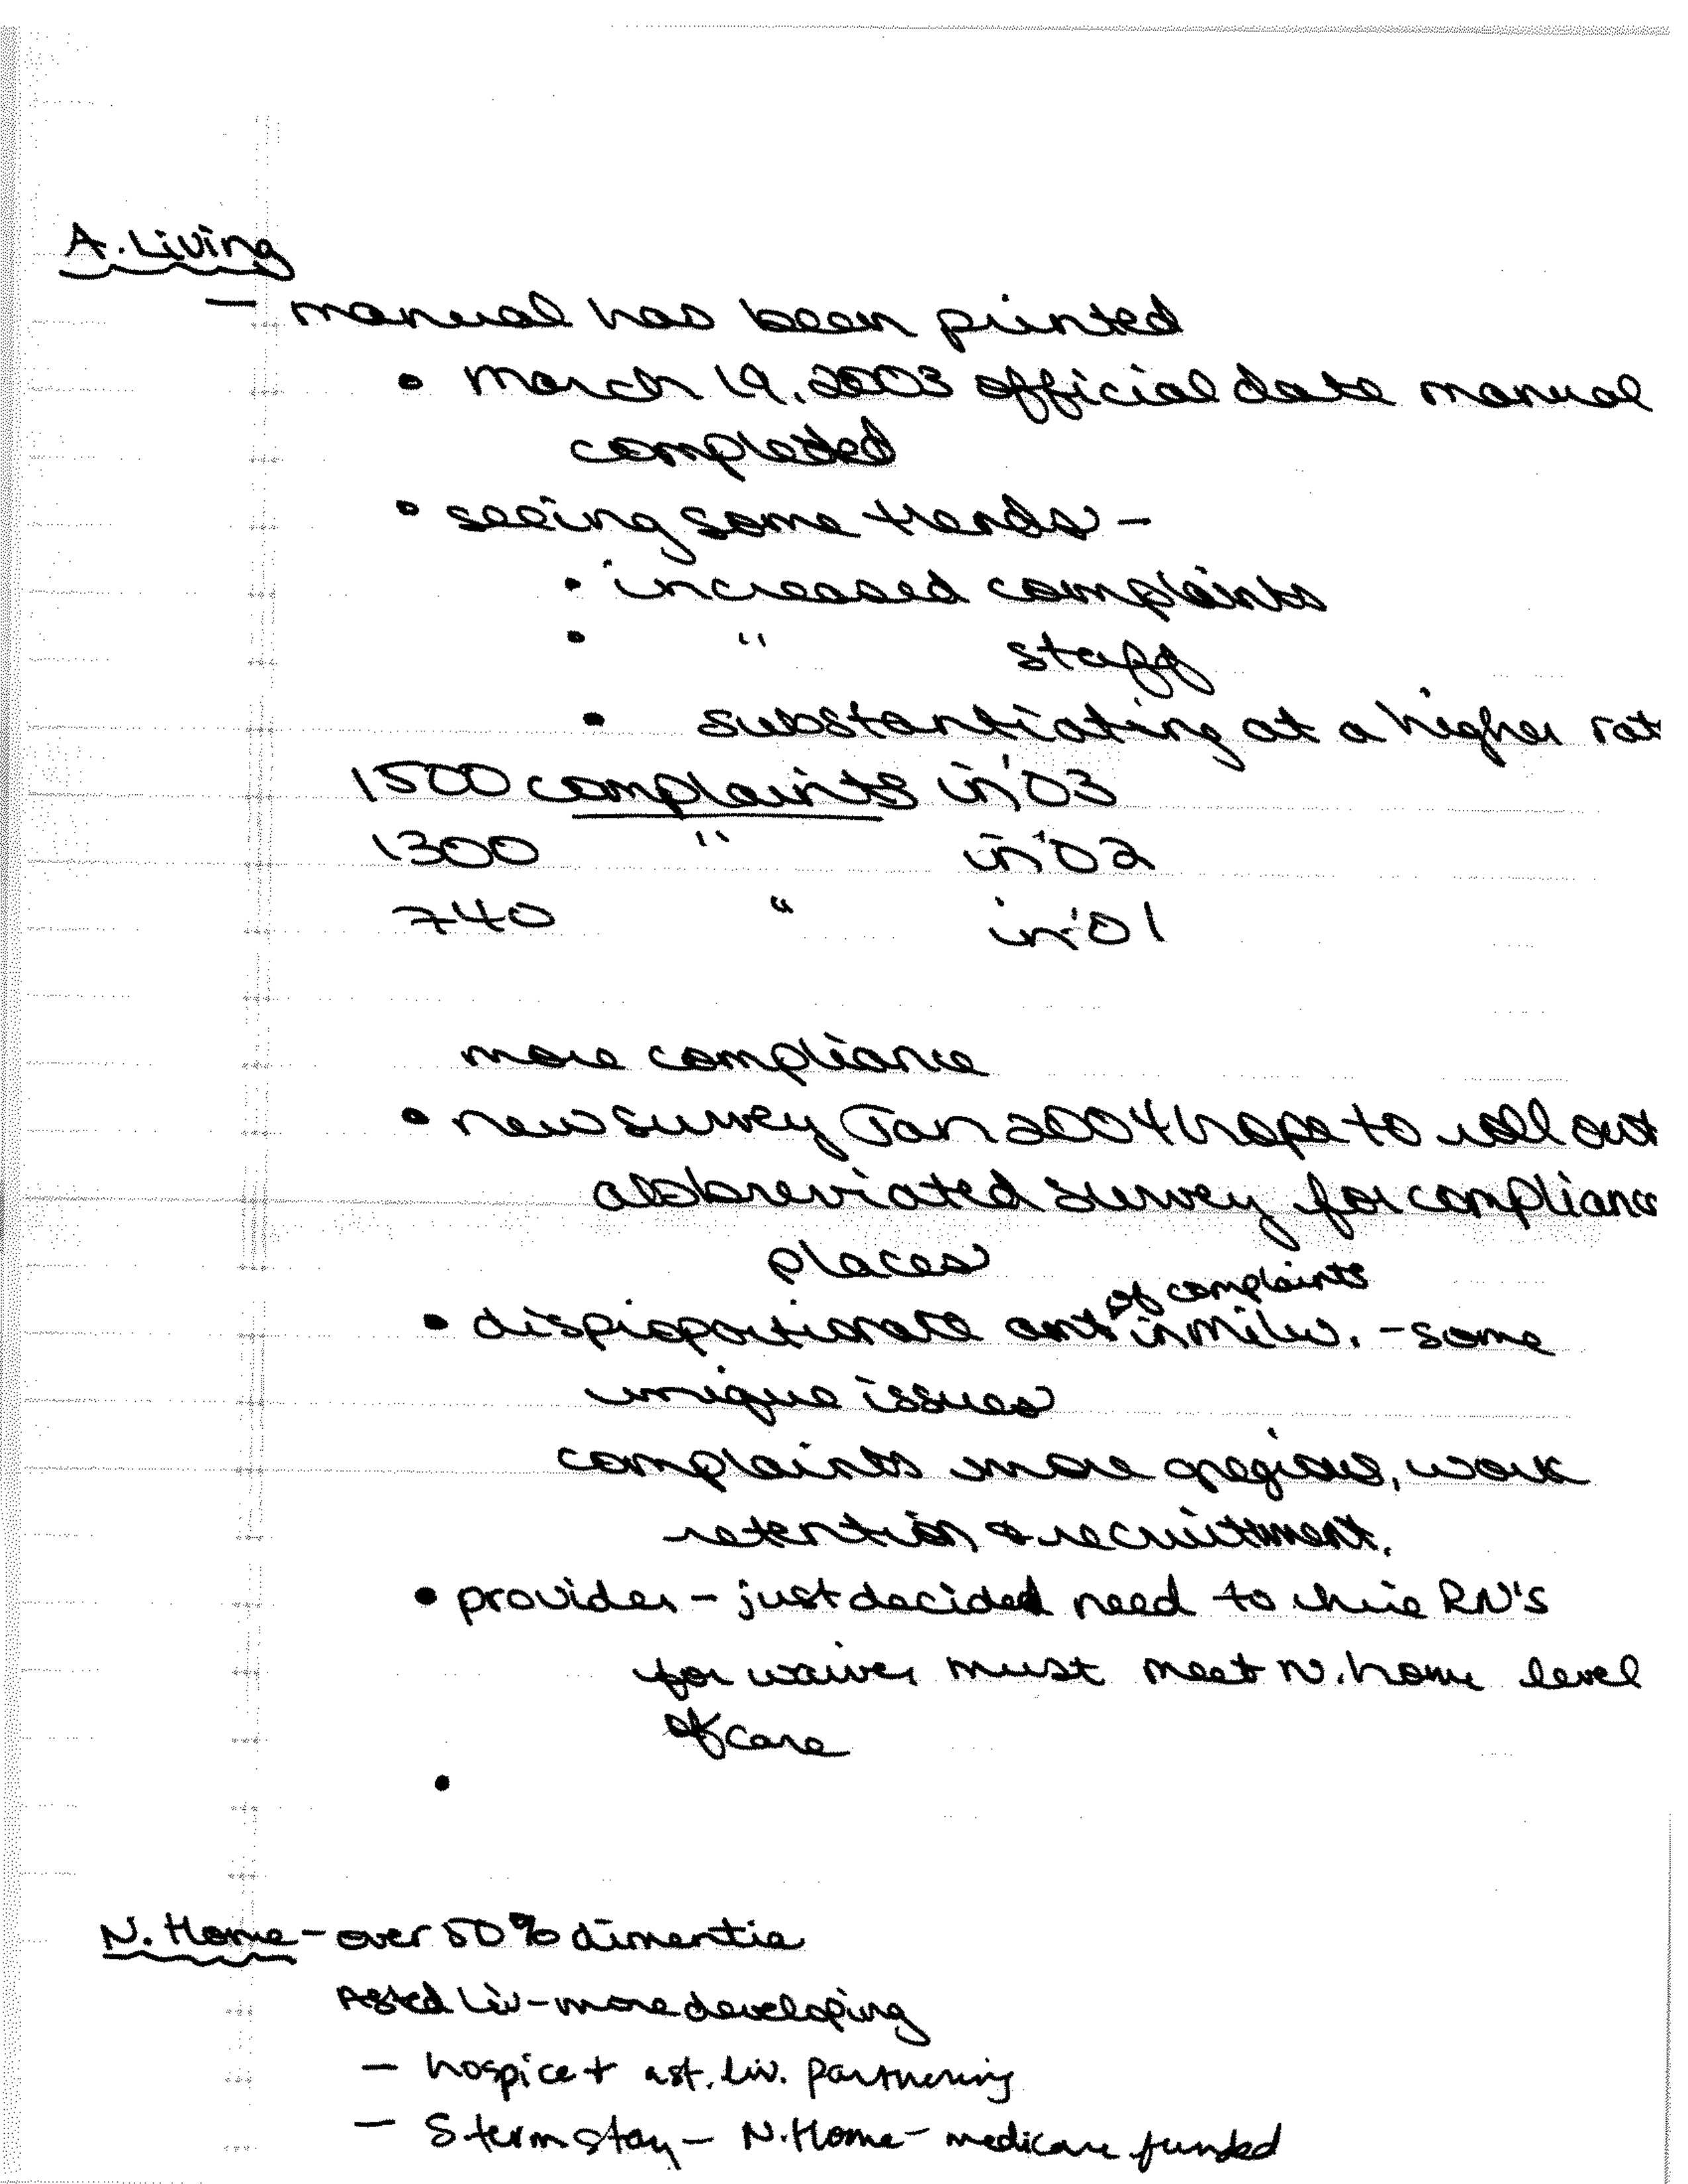 A. Living
— manual has been printed
• March 19, 2003 official date manual
completed
• seeing some trends —
• increased complaints
• " staff
• substantiating at a higher rat
1500 complaints in '03
1300 " in '02
740 " in '01
more compliance
• new survey Jan 2004 hope to roll out
abbreviated survey for complianc
places
of complaints
• disproportionate amt in Milw. - some
unique issues
complaints more egregious, work
retention & recruitment.
• provider - just decided need to hire RN's
for waiver must meet N. home level
of care
•
N. Home - over 50% dimentia
Asted Liv - more developing
— hospice + ast. liv. partnering
— S. term stay - N. Home - medicare funded